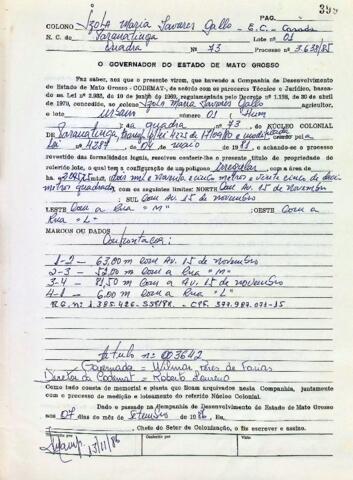 399
PAG.
COLONO Izola Maria Tavares Gallo - E.C. - Casada
N. C. de Paranatinga Lote nº 01
Quadra 73 Processo nº 3.638/85
O GOVERNADOR DO ESTADO DE MATO GROSSO
Faz saber, aos que o presente virem, que havendo a Companhia de Desenvolvimento
do Estado de Mato Grosso - CODEMAT-, de acôrdo com os pareceres Técnico e Jurídico, baseados
na Lei nº 2.933, de 10 de junho de 1969, regulamentados pelo Decreto nº 1.138, de 30 de abril
de 1970, concedido, ao colono Izola Maria Tavares Gallo agricultor,
e o lote urbano nº 01 Hum
na quadra 73 do NÚCLEO COLONIAL
de Paranatinga, p/ Lei 4225 de 17/09/80 e modificada
Lei nº 4287 de 04 de maio 1981, e achando-se o processo
revestido das formalidades legais, resolveu conferir-lhe o presente título de propriedade do
referido lote, o qual tem a configuração de um polígono Irregular com a área de
dois mil e noventa e cinco metros e vinte cinco deci-
metros quadrados com os seguintes limites: NORTE Com Av. 15 de novembro
; SUL Com Av. 15 de novembro
LESTE Com a Rua "M" ;OESTE Com a
Rua "L"
MARCOS OU DADOS
Confrontações:
1-2 - 63,00 m com Av. 15 de novembro
2-3 - 52,00 m com a Rua "M"
3-4 - 81,50 m com a Av. 15 de novembro
4-1 - 6,00 m com a Rua "L"
título nº 003642
Governador = Wilmar Peres de Farias
Diretor da Codemat = Roberto Loureiro
Como tudo consta do memorial e planta que ficam arquivados nesta Companhia, juntamente
com o processo de medição e loteamento do referido Núcleo Colonial.
Dado e passado na Companhia de Desenvolvimento do Estado de Mato Grosso
aos 07 dias do mês de Setembro de 1986, Eu,
, Chefe do Setor de Colonização, o fiz escrever e assino.
Escrito por
Conferido por
Visto
13/11/86